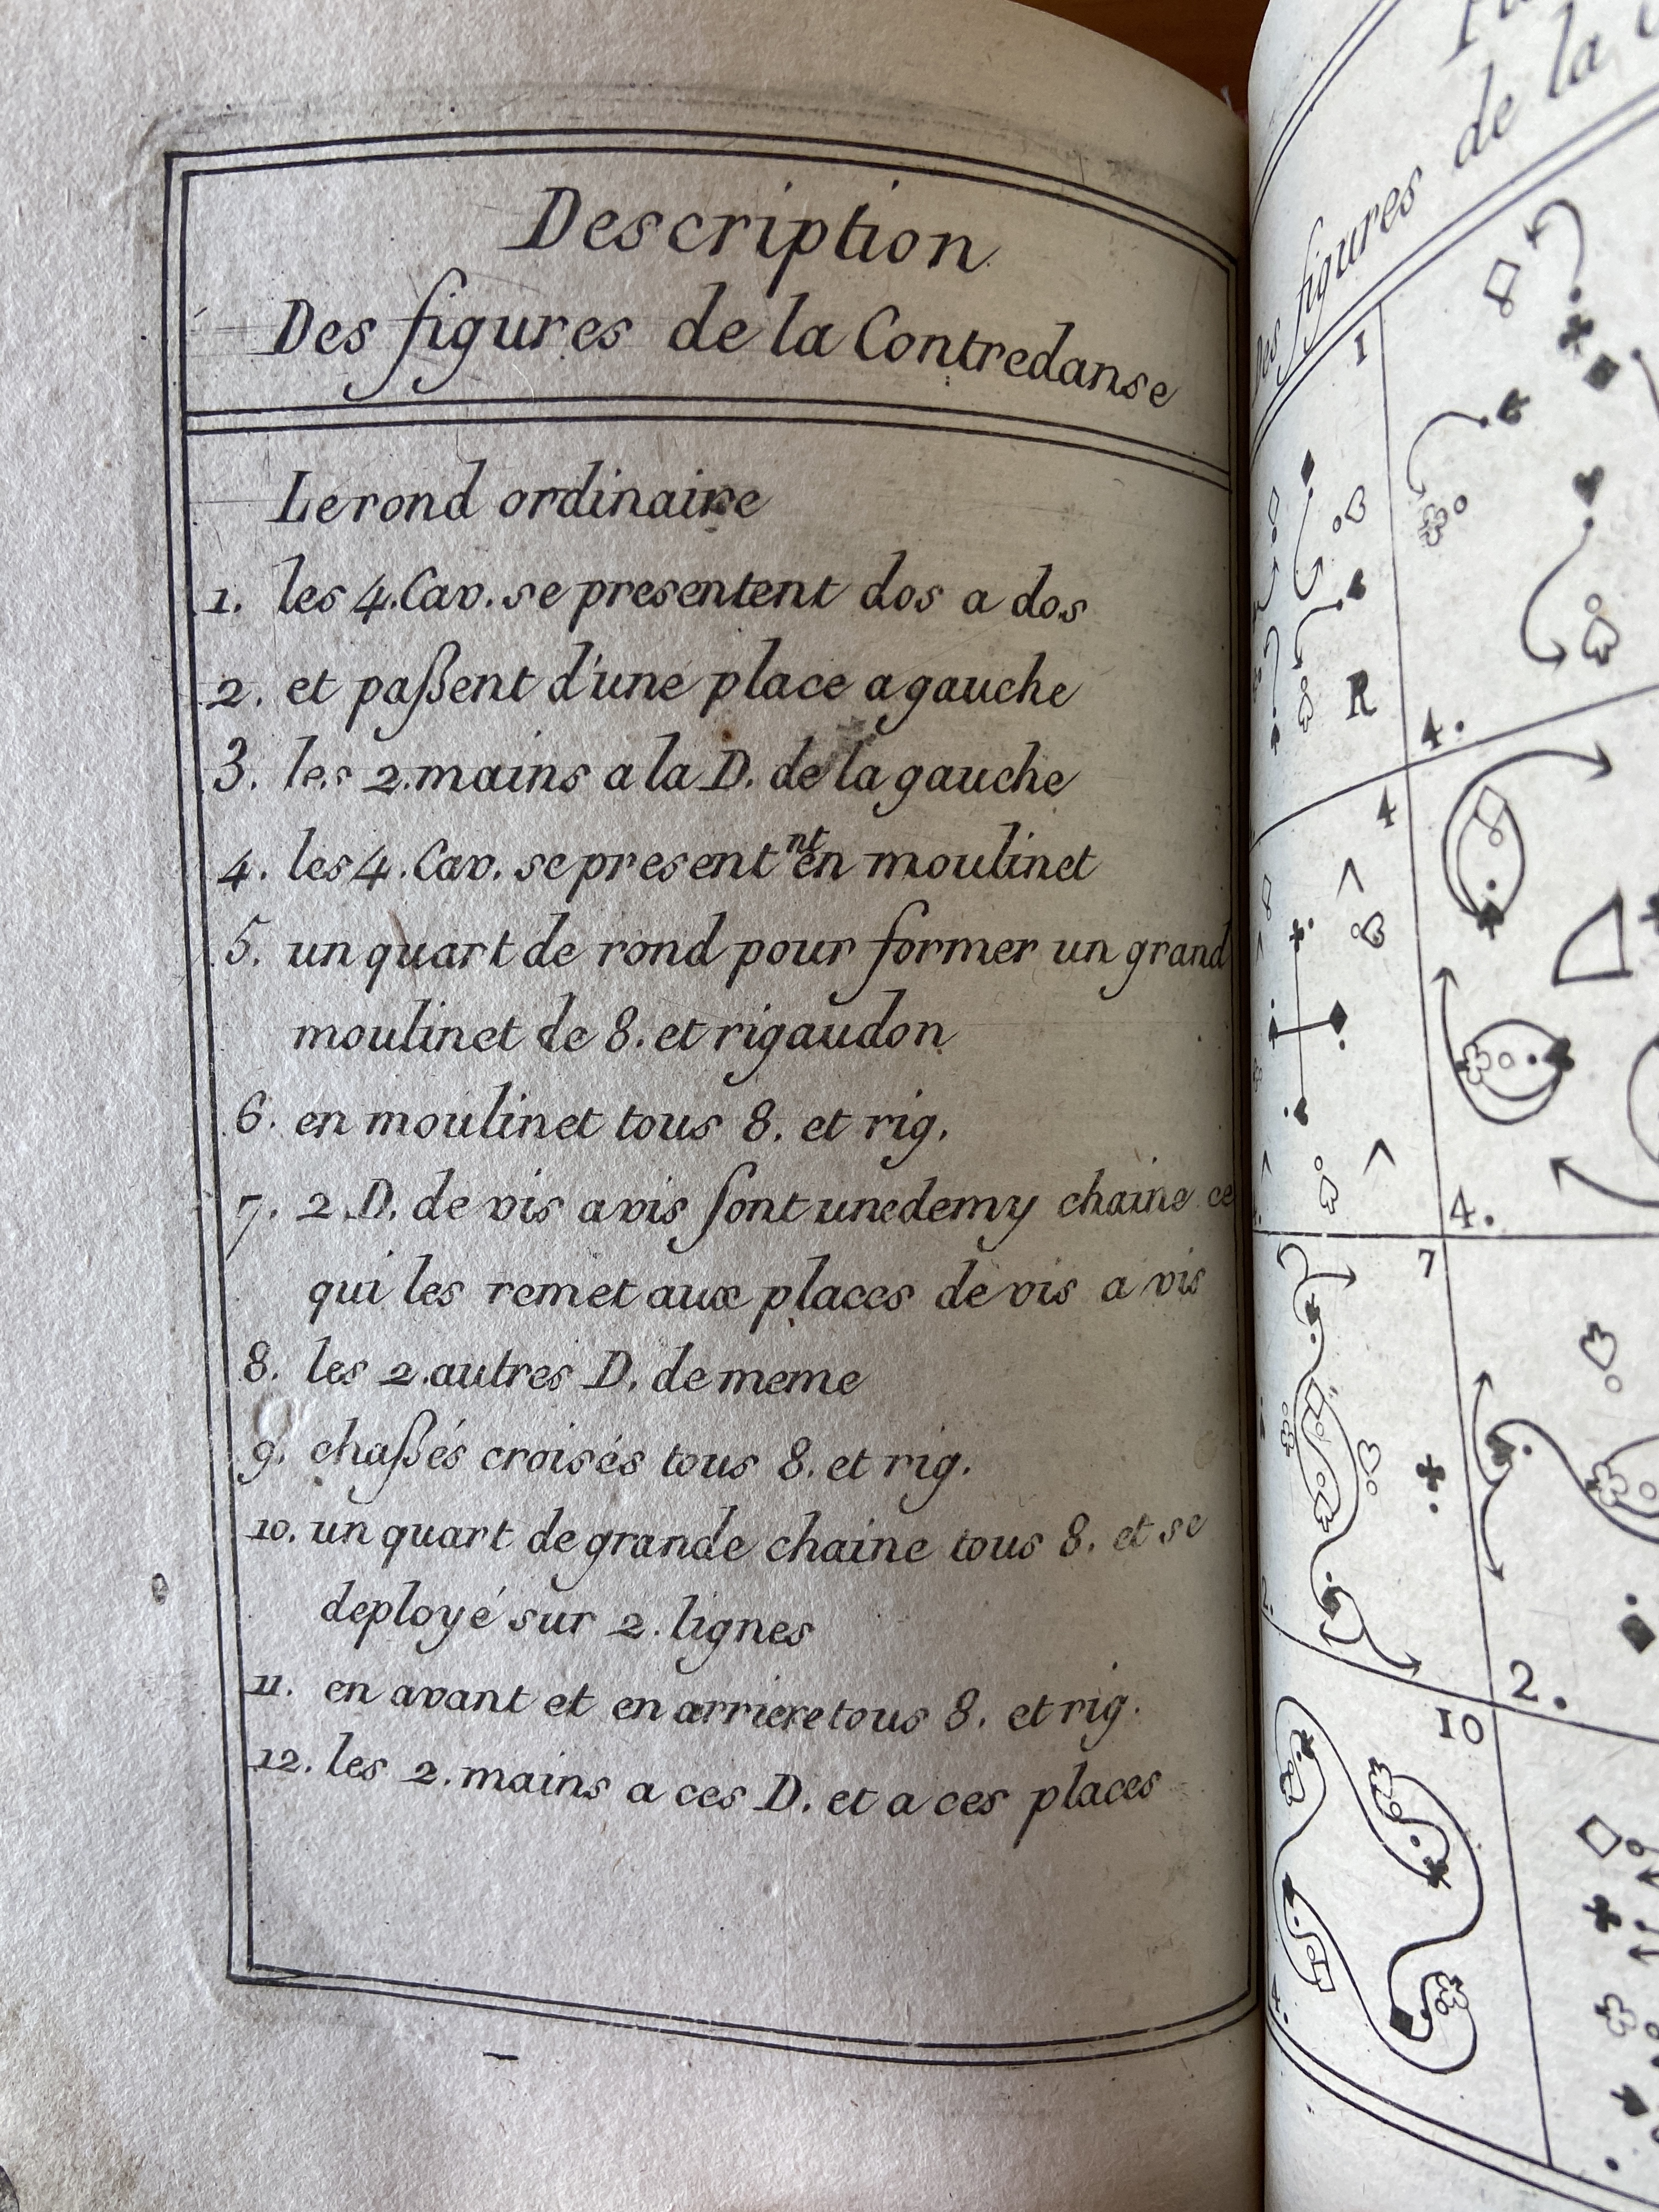 Description
Des figures de la Contredanse
Le rond ordinaire
1. les 4. Cav. se presentent dos a dos
2. et paßent d'une place a gauche
3. les 2. mains a la D. de la gauche
4. les 4. Cav. se present^nt en moulinet
5. un quart de rond pour former un grand
moulinet de 8. et rigaudon
6. en moulinet tous 8. et rig.
7. 2. D. de vis a vis font une demy chaine ce
qui les remet aux places de vis a vis
8. les 2. autres D. de meme
9. chaßés croisés tous 8. et rig.
10. un quart de grande chaine tous 8. et se
deployé sur 2. lignes
11. en avant et en arriere tous 8. et rig.
12. les 2. mains a ces D. et a ces places
Des figures de la
1
R
4.
4
4.
7
2.
10